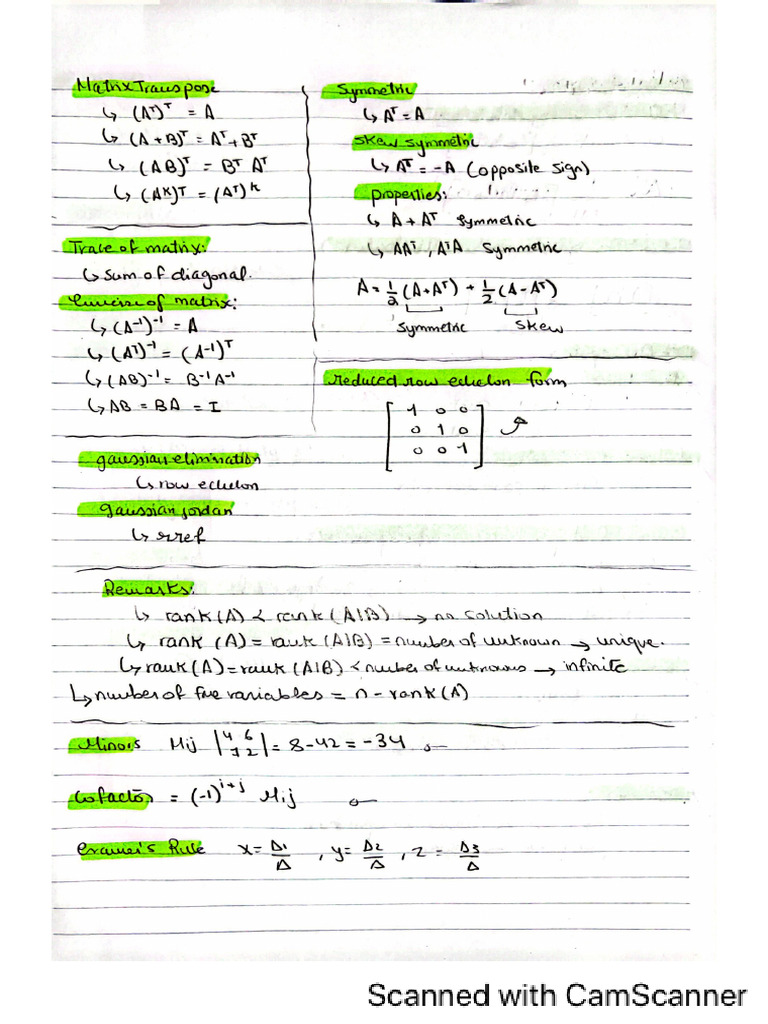 Matrix Transpose
↳ (Aᵀ)ᵀ = A
↳ (A + B)ᵀ = Aᵀ + Bᵀ
↳ (AB)ᵀ = Bᵀ Aᵀ
↳ (Aᴷ)ᵀ = (Aᵀ)ᴷ
Trace of matrix:
↳ sum of diagonal.
Inverse of matrix:
↳ (A⁻¹)⁻¹ = A
↳ (Aᵀ)⁻¹ = (A⁻¹)ᵀ
↳ (AB)⁻¹ = B⁻¹A⁻¹
↳ AB = BA = I
gaussian elimination
↳ row echelon
gaussian jordan
↳ rref
Symmetric
↳ Aᵀ = A
skew symmetric
↳ Aᵀ = -A (opposite sign)
properties:
↳ A + Aᵀ symmetric
↳ AAᵀ, AᵀA symmetric
A = 1/2 (A+Aᵀ) + 1/2 (A-Aᵀ)
symmetric skew
reduced row echelon form
1 0 0
0 1 0
0 0 1
Remarks:
↳ rank(A) < rank(A|B) → no solution
↳ rank (A) = rank (A|B) = number of unknown → unique.
↳ rank(A) = rank (A|B) < number of unknowns → infinite
↳ number of free variables = n - rank(A)
Minors Mij |4 6
7 2| = 8-42 = -34
Cofactor = (-1)ⁱ⁺ʲ Mij
Cramer's Rule x = Δ1/Δ , y = Δ2/Δ , z = Δ3/Δ
Scanned with CamScanner